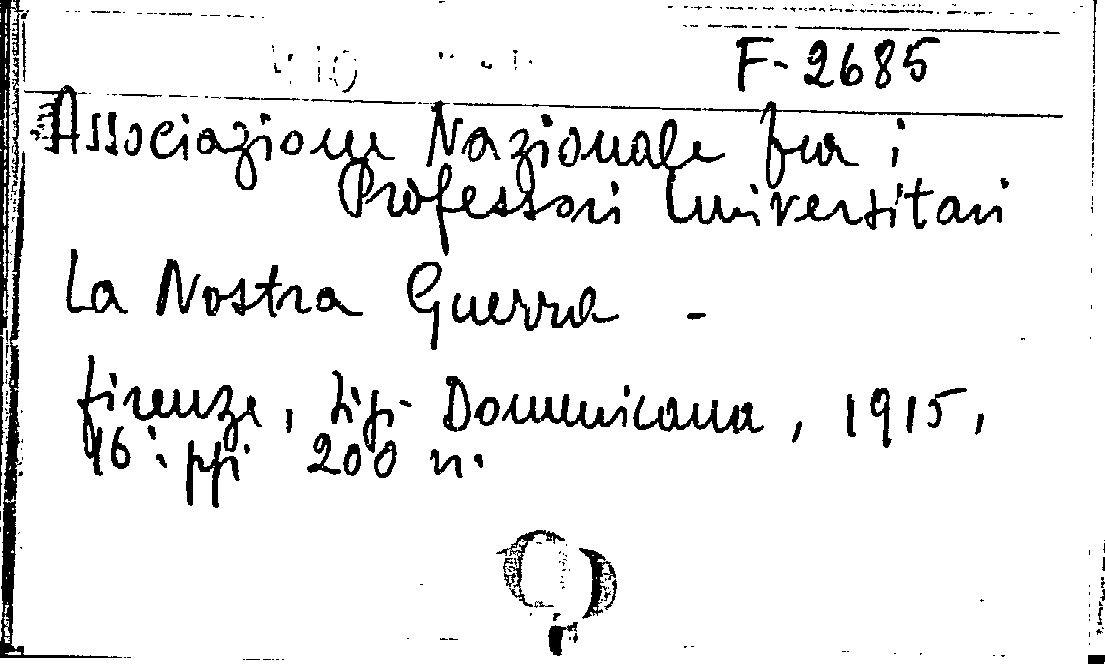 F-2685
Associazione Nazionale fra i
Professori Universitari
La Nostra Guerra -
Firenze, Tip. Domenicana, 1915,
16: pp. 200 n.